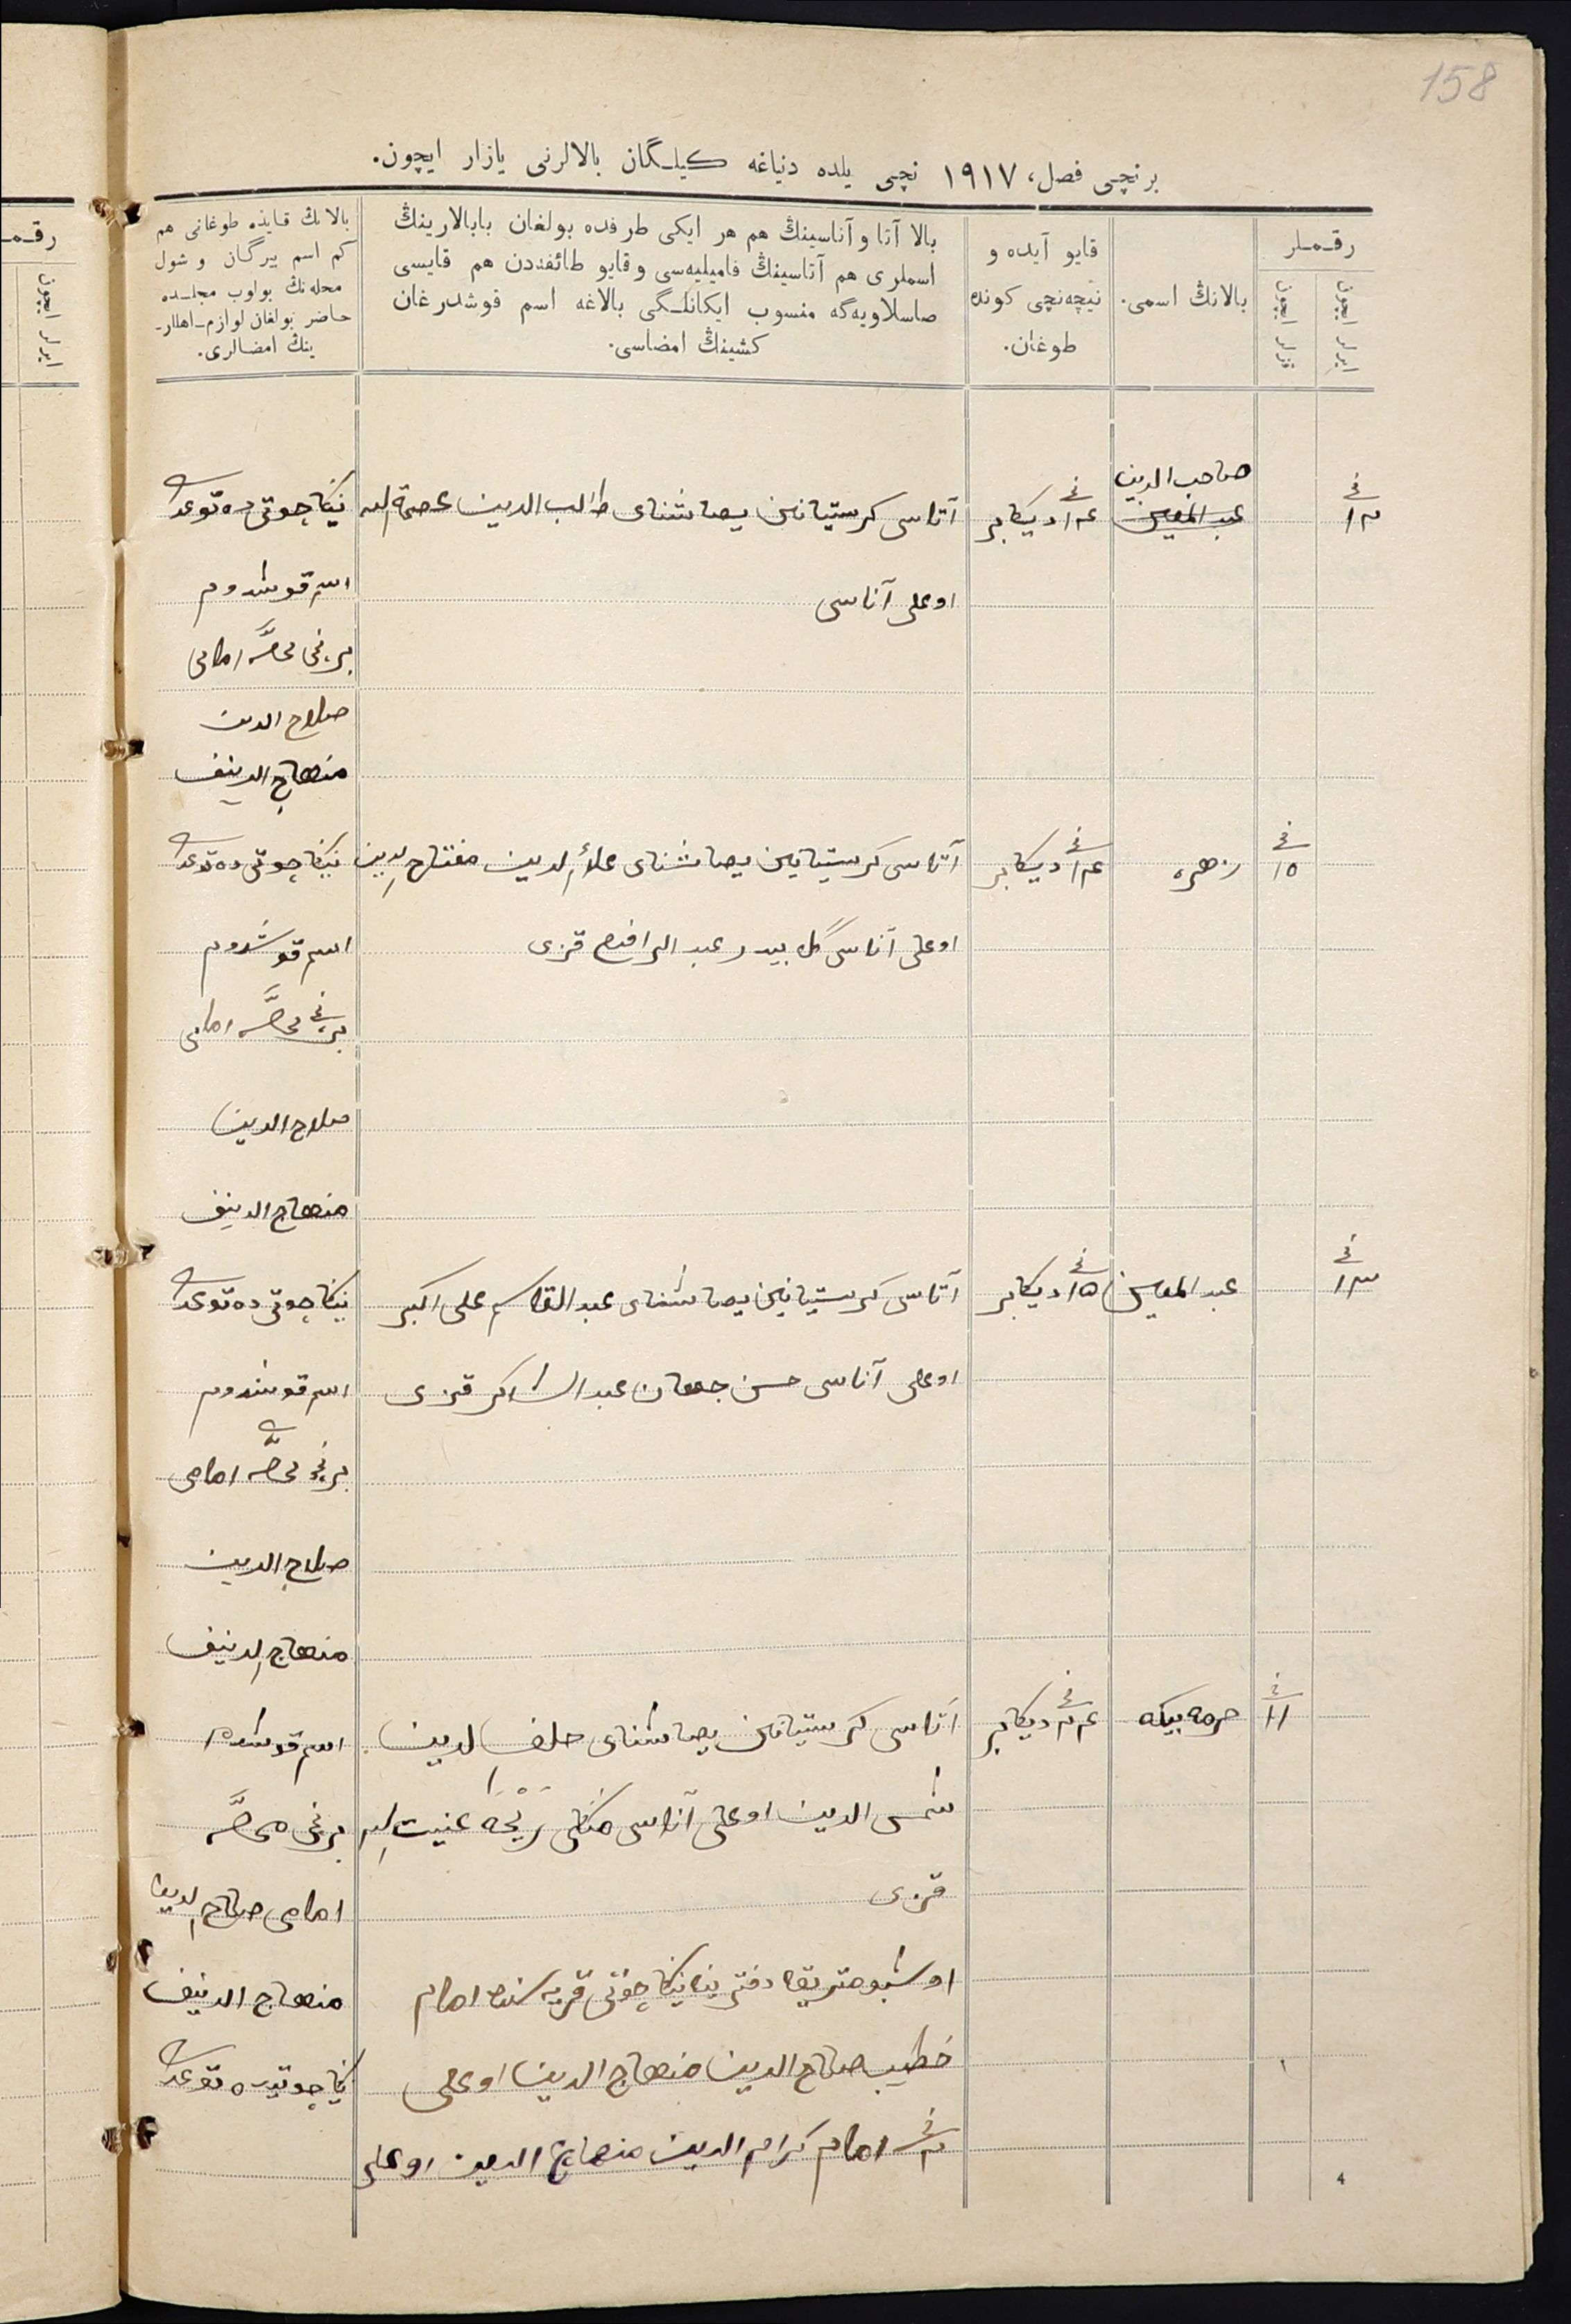 158
برنچی فصل، ۱۹۱۷ نچی یلده دنیاغه کیلـگان بالالرنی یازار ایچون.
رقـمـلر
ایرلر ایچون
قزلر ایچون
بالانڭ اسمی.
قایو آیده و
نیچه‌نچی کونده
طوغان.
بالا آتا و آناسینڭ هم هر ایکی طرفده بولغان بابالارینڭ
اسملری هم آتاسینڭ فامیلیه‌سی و قایو طائفه‌دن هم قایسی
صاسلاویه‌گه منسوب ایکانلـگی بالاغه اسم قوشدرغان
کشینڭ امضاسی.
بالانڭ قایده طوغانی هم
کم اسم بیرگان و شول
محله‌نڭ بولوب مجلـسده
حاضر بولغان لوازم-اهللر-
ینڭ امضالری.
رقـمـ
ایرلر ایچون
۱۲ نچی
صاحب الدین
عبد المعین
۱۴ نچی دیکابر
آتاسی کرستیانین یصاشنای طالب الدین عصمة الله
اوغلی آناسی
نیکاچوتی ده توغدی
اسم قوشدوم
برنچی محله امامی
صلاح الدین
منهاج الدینف
۱۵ نچی
زهره
۱۴ نچی دیکابر
آتاسی کرستیانین یصاشنای علاء الدین مفتاح الدین
اوغلی آناسی گل بدر عبد الرافع قزی
نیکاچوتی ده توغدی
اسم قوشدوم
برنچی محله امامی
صلاح الدین
منهاج الدینف
۱۳ نچی
عبد المعین
۱۵ نچی دیکابر
آتاسی کرستیانین یصاشنای عبد القاسم علی اکبر
اوغلی آناسی حسن جهان عبد الشاکر قزی
نیکاچوتی ده توغدی
اسم قوشدوم
برنچی محله امامی
صلاح الدین
منهاج الدینف
۱۶ نچی
بیکه
۲۴ نچی دیکابر
آتاسی کرستیانین یصاشنای الدین
شمس الدین اوغلی آناسی
قزی
اسم قوشدم
برنچی محله
امامی صلاح الدین
منهاج الدینف
نیکاچوتیده توغدی
اوشبو متریقه دفترینه نیکاچوتی قریه سنده امام
خطیب صلاح الدین منهاج الدین اوغلی
۲ نچی امام کرام الدین منهاج الدین اوغلی
4